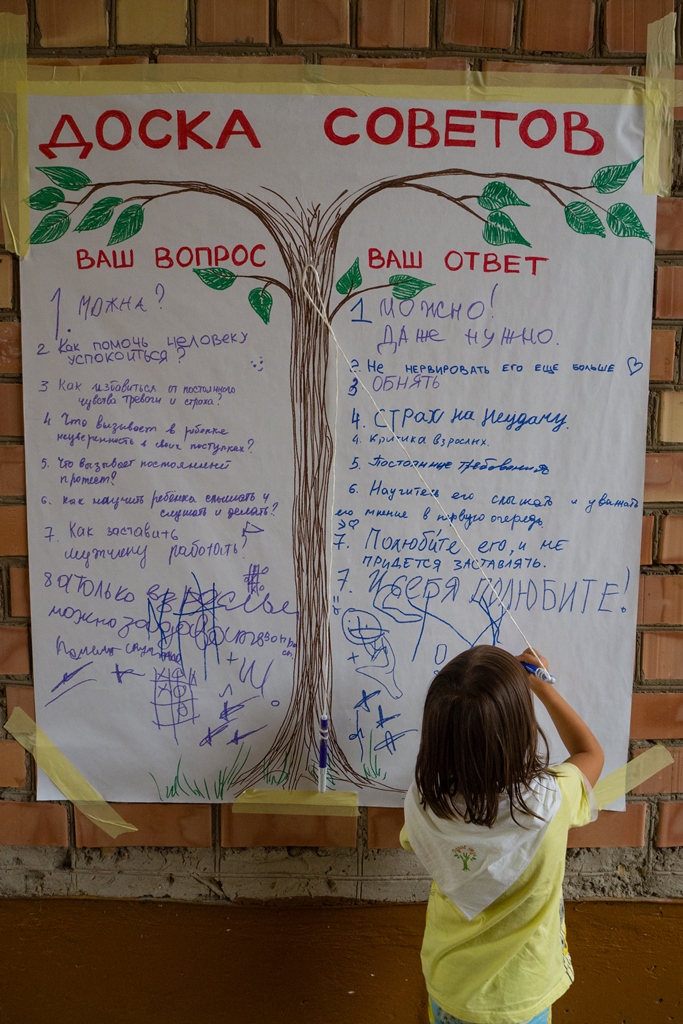 ДОСКА СОВЕТОВ
ВАШ ВОПРОС
1. МОЖНА?
2 Как помочь человеку
успокоиться?
3 Как избавиться от постоянного
чувства тревоги и страха?
4 Что вызывает в ребенке
неуверенность в своих поступках?
5. Что вызывает постоянный
протест?
6. Как научить ребенка слышать и
слушать и делать?
7. Как заставить
мужчину работать?
8 А ТОЛЬКО взрослые
можно задавать
ВАШ ОТВЕТ
1 МОЖНО!
ДАЖЕ НУЖНО.
2. Не нервировать его еще больше
3 ОБНЯТЬ
4. СТРАХ на неудачу.
4. Критика взрослых.
5. Постоянные требования
6. Научитесь его слышать и уважать
его мнение в первую очередь
7. Полюбите его, и не
придется заставлять.
7. И СЕБЯ ПОЛЮБИТЕ!